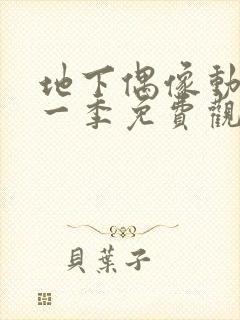 地下偶像動
一季免費觀
貝葉子